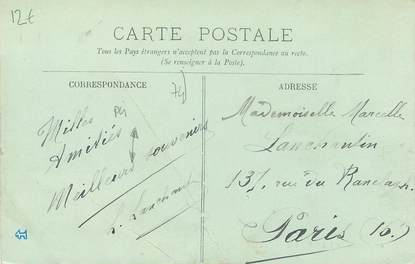 12€
CARTE POSTALE
Tous les Pays étrangers n'acceptent pas la Correspondance au recto.
(Se renseigner à la Poste).
CORRESPONDANCE
Milles
Amitiés
Meilleurs souvenirs
L. Lanchant
ADRESSE
Mademoiselle Marcelle
Lanchantin
137, rue du Ranelagh
Paris (16)